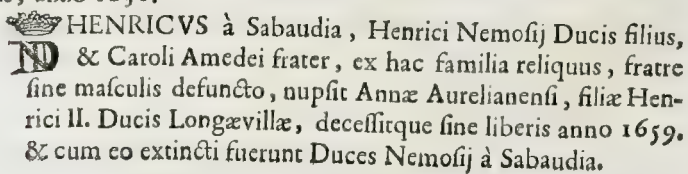 HENRICVS à Sabaudia, Henrici Nemoſij Ducis filius,
& Caroli Amedei frater, ex hac familia reliquus, fratre
ſine maſculis defuncto, nupſit Annæ Aurelianenſi, filiæ Hen-
rici II. Ducis Longævillæ, deceſſitque ſine liberis anno 1659.
& cum eo extincti fuerunt Duces Nemoſij à Sabaudia.